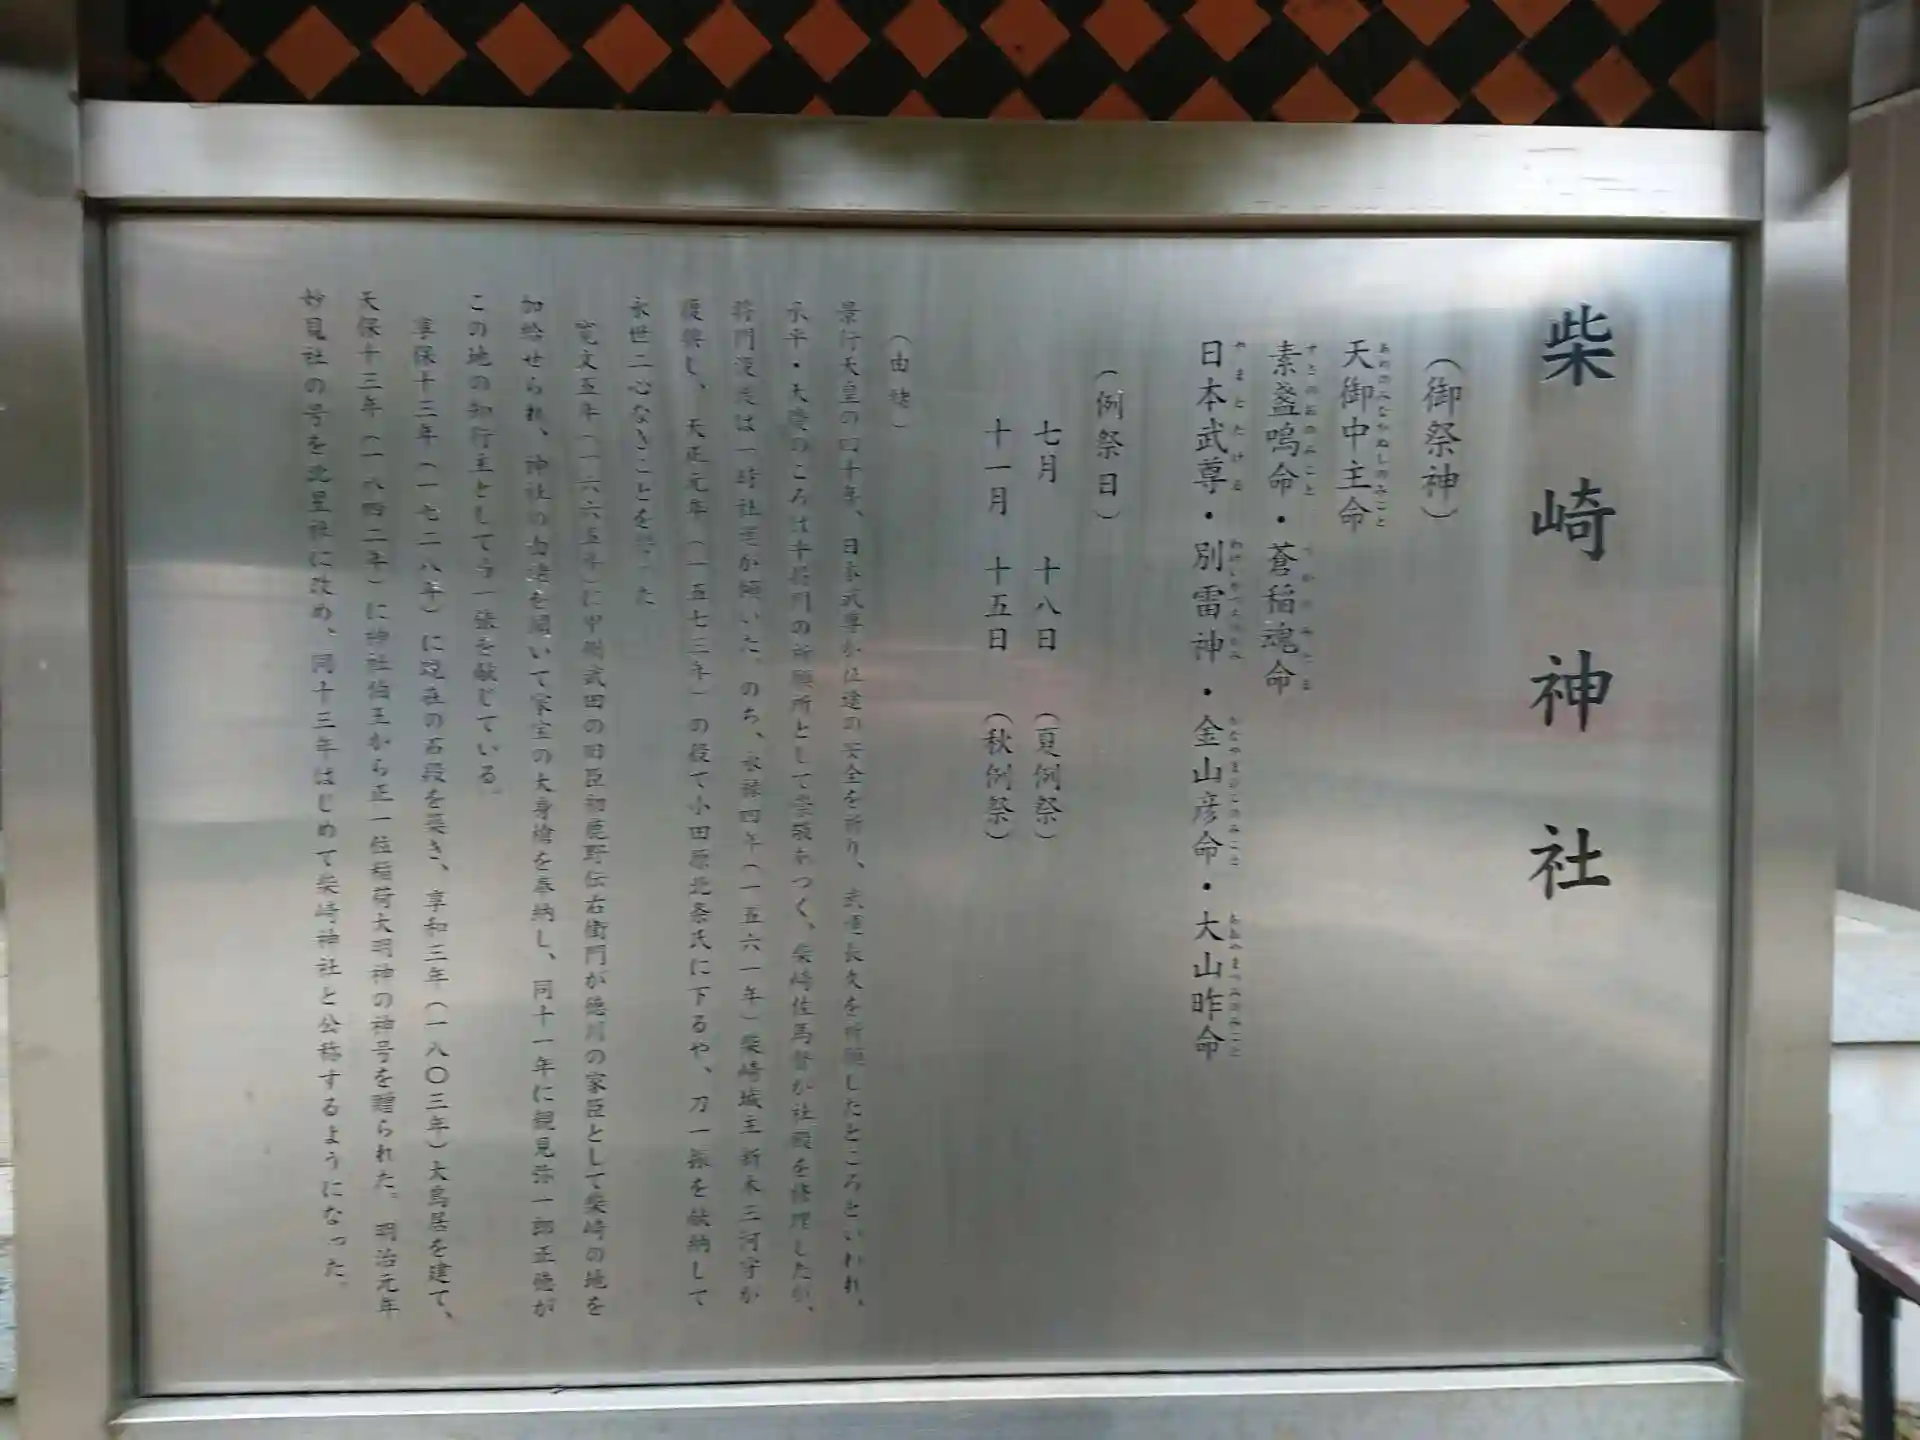 柴崎神社
（御祭神）
天御中主命
素盞嗚命・蒼稲魂命
日本武尊・別雷神・金山彦命・大山昨命
（例祭日）
七月　十八日　（夏例祭）
十一月　十五日　（秋例祭）
（由緒）
景行天皇の四十年、日本武尊が征途の安全を祈り、武運長久を祈願したところといわれ、
承平・天慶のころは平将門の祈願所として崇敬あつく、柴崎左馬督が社殿を修理したが、
将門没後は一時社運が傾いた。のち、永禄四年（一五六一年）柴崎城主新木三河守が
復興し、天正元年（一五七三年）の役で小田原北条氏に下るや、刀一振を献納して
永世二心なきことを誓った
寛文五年（一六六五年）に甲州武田の旧臣初鹿野伝右衛門が徳川の家臣として柴崎の地を
加給せられ、神社の由緒を聞いて家宝の大身槍を奉納し、同十一年に観見弥一郎正徳が
この地の知行主として弓一張を献じている。
享保十三年（一七二八年）に現在の石段を築き、享和三年（一八〇三年）大鳥居を建て、
天保十三年（一八四二年）に神祇伯王から正一位稲荷大明神の神号を贈られた。明治元年
妙見社の号を北星社に改め、同十三年はじめて柴崎神社と公称するようになった。